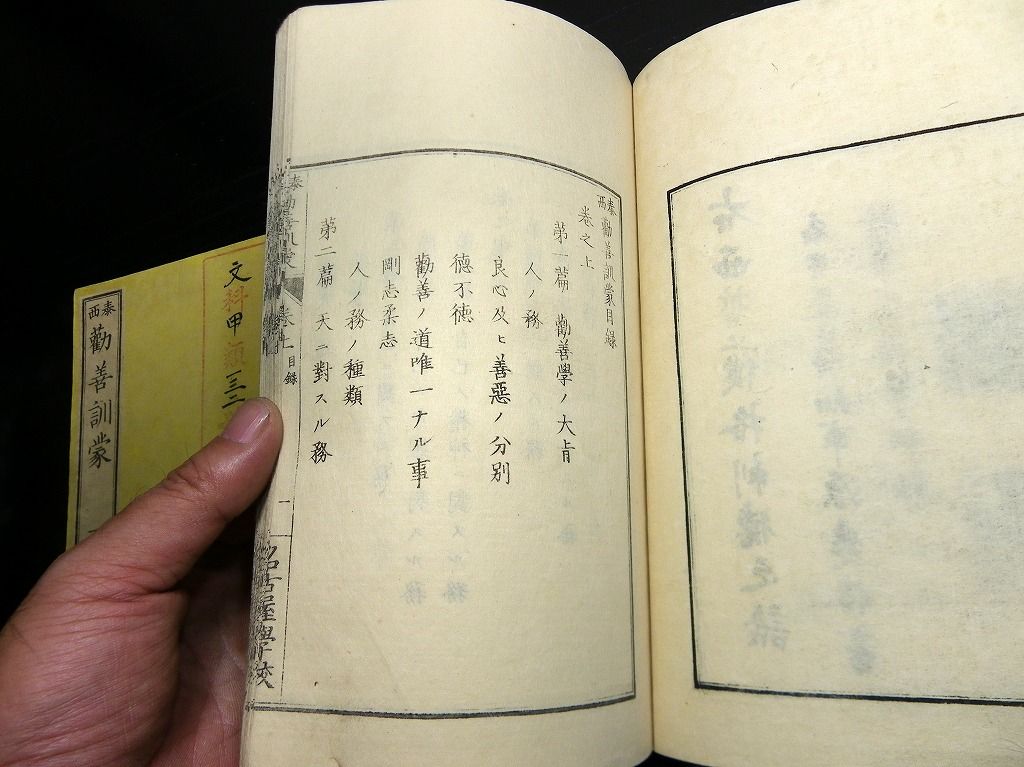 泰西勸善訓蒙目錄
卷之上
第一篇 勸善學ノ大旨
人ノ務
良心及ヒ善惡ノ分別
德不德
勸善ノ道唯一ナル事
剛志柔志
人ノ務ノ種類
第二篇 天ニ對スル務
卷上
目錄
一
名古屋學校
文科甲
泰西勸善訓蒙